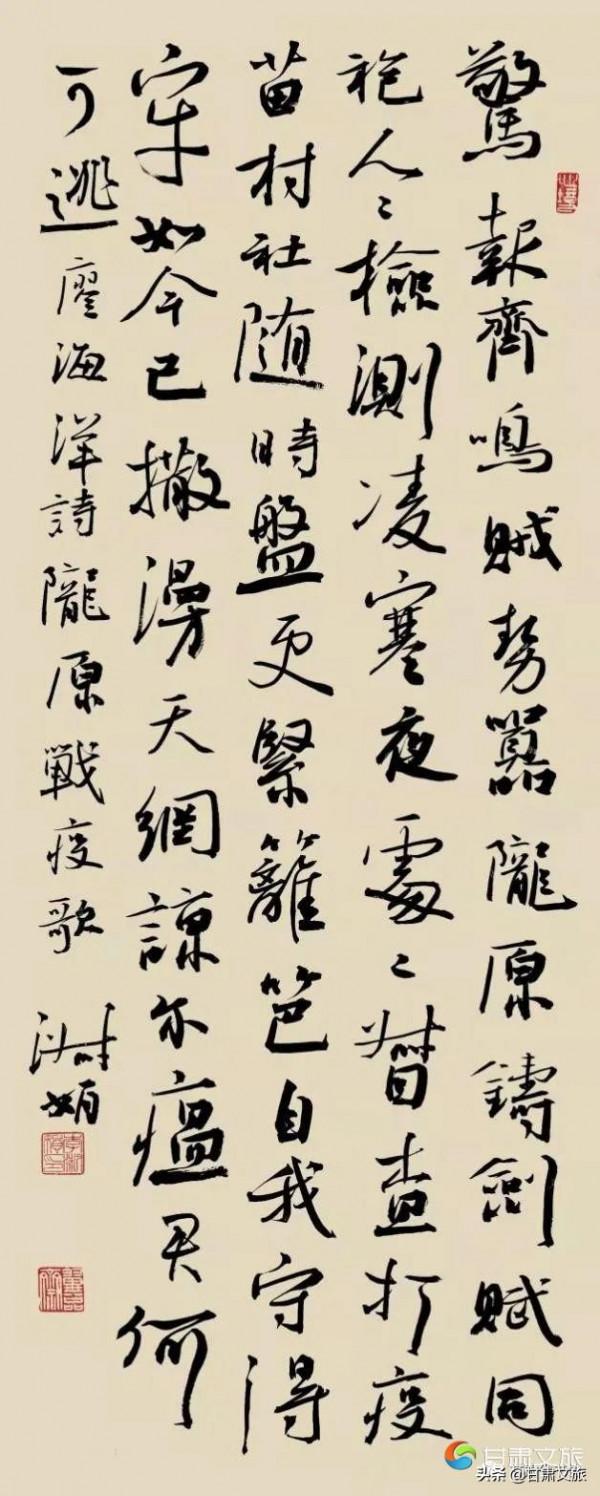 驚報齊鳴賊勢囂隴原鑄劍賦同
袍人〻檢測凌寒夜處〻督查打疫
苗村社随時盤更緊籬笆自我守得
牢如今已撒漫天網諒尔瘟君何
可逃廖海洋詩隴原戰疫歌淑娟
甘肃文旅
头条@甘肃文旅